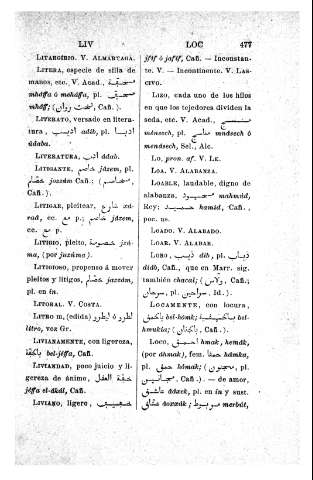 LIV
LOC
477
LITARGIRIO. V. ALMARTAGA.
LITERA, especie de silla de
manos, etc. V. Acad.,
mhaffa ó meháffa, pl.
mháff; (تخت روان, Cañ.).
LITERATO, versado en litera-
tura, اديب adib, pl. ادبا
ádaba.
LITERATURA, ادب ádab.
LITIGANTE, خاصم jázem, pl.
خصام jozzám Cañ.; (متخاصم,
Cañ.).
LITIGAR, pleitear, شارع xá-
rad, cc. مع p.; خاصم jázem,
cc. مع p.
LITIGIO, pleito, خصومة jozó-
ma, (por juzúma).
LITIGIOSO, propenso á mover
pleitos y litigos, خصام jazzám,
pl. en in.
LITORAL. V. COSTA.
LITRO m, (edida) لطرو ó ايطرو
litro, voz Gr.
LIVIANAMENTE, con ligereza,
بالخفة bel-jóffa, Cañ.
LIVIANDAD, poco juicio y li-
gereza de ánimo, خفة العقل
jóffa el-âkál, Cañ.
LIVIANO, ligero, خفيف
jfíf ó jafíf, Cañ. — Inconstan-
te. V. — Incontinente. V. LAS-
CIVO.
LIZO, cada uno de los hilos
en que los tejedores dividen la
seda, etc. V. Acad.,
mánesch, pl. مناسج mnásech ó
menásech, Sel., Alc.
LO, pron. af. V. LE.
LOA. V. ALABANZA.
LOABLE, laudable, digno de
alabanza, محمود mahmúd,
Rey: حميد hamid, Cañ.,
poc. us.
LOADO. V. ALABADO.
LOAR. V. ALABAR.
LOBO, ذيب dib, pl. ذياب
diáb, Cañ., que en Marr. sig.
también chacal; (ولاس, Cañ.;
سرحان, pl. سراحين, Id.).
LOCAMENTE, con locura,
بالحمق bel-hómk;
hmukía; (بالجنان, Cañ.).
LOCO, احمق hmak, hemák,
(por áhmak), fem. حمقا hámka,
pl. حمق hómak; (مجنون, pl.
مجانين, Cañ.). — de amor,
عاشق âáxek, pl. en in y sust.
عشاق âoxxák; مربوط marbút,